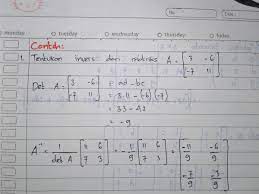 No.
Date
monday tuesday wednesday thursday friday
Contoh:
1. Tentukan invers dari matriks A = [3 -6
-7 11]
Det A = [3 -6
-7 11] = ad - bc
= 3.11 - (-6)(-7)
= 33 - 42
= -9
A⁻¹ = 1/det A [11 6
7 3] = 1/-9 [11 6
7 3] = [-11/9 -6/9
-7/9 -3/9]